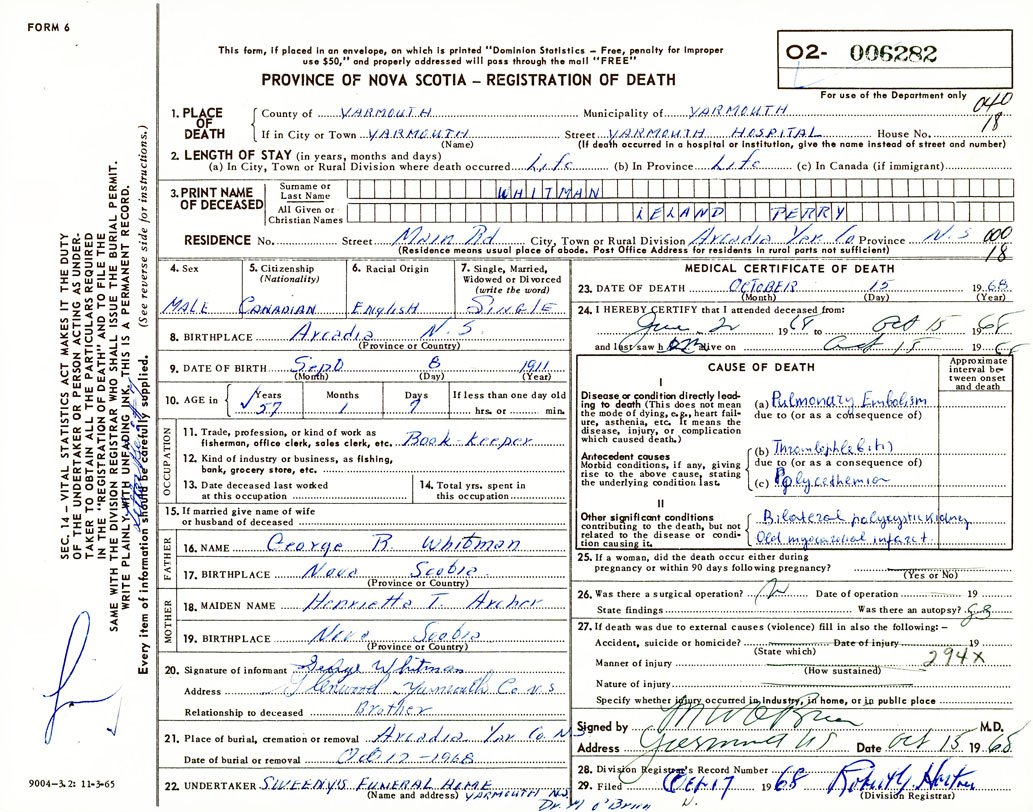 FORM 6
This form, if placed in an envelope, on which is printed "Dominion Statistics – Free, penalty for improper
use $50," and properly addressed will pass through the mail "FREE"
PROVINCE OF NOVA SCOTIA – REGISTRATION OF DEATH
02- 006282
For use of the Department only
040
18
1. PLACE OF DEATH
County of YARMOUTH Municipality of YARMOUTH
If in City or Town YARMOUTH Street YARMOUTH HOSPITAL House No.
(Name) (If death occurred in a hospital or institution, give the name instead of street and number)
2. LENGTH OF STAY (in years, months and days)
(a) In City, Town or Rural Division where death occurred Life (b) In Province Life (c) In Canada (if immigrant)
3. PRINT NAME OF DECEASED
Surname or Last Name WHITMAN
All Given or Christian Names LELAND PERRY
RESIDENCE No. Street Main Rd City, Town or Rural Division Arcadia Yar Co Province N.S
(Residence means usual place of abode. Post Office Address for residents in rural parts not sufficient)
000
18
4. Sex 5. Citizenship (Nationality) 6. Racial Origin 7. Single, Married, Widowed or Divorced (write the word)
MALE CANADIAN ENGLISH SINGLE
8. BIRTHPLACE Arcadia N.S.
(Province or Country)
9. DATE OF BIRTH Sept 8 1911
(Month) (Day) (Year)
10. AGE in Years Months Days If less than one day old
57 1 7 hrs. or min.
OCCUPATION
11. Trade, profession, or kind of work as
fisherman, office clerk, sales clerk, etc. Book-keeper
12. Kind of industry or business, as fishing,
bank, grocery store, etc.
13. Date deceased last worked
at this occupation
14. Total yrs. spent in
this occupation
15. If married give name of wife
or husband of deceased
FATHER
16. NAME George R. Whitman
17. BIRTHPLACE Nova Scotia
(Province or Country)
MOTHER
18. MAIDEN NAME Henrietta T. Archer
19. BIRTHPLACE Nova Scotia
(Province or Country)
20. Signature of informant George Whitman
Address Glenwood Yarmouth Co N.S
Relationship to deceased Brother
21. Place of burial, cremation or removal Arcadia Yar Co N.S
Date of burial or removal Oct 17 - 1968
22. UNDERTAKER SWEENYS FUNERAL HOME
(Name and address) YARMOUTH N.S.
Dr. M O'Brien
MEDICAL CERTIFICATE OF DEATH
23. DATE OF DEATH OCTOBER 15 1968
(Month) (Day) (Year)
24. I HEREBY CERTIFY that I attended deceased from:
June 2 1968 to Oct 15 1968
and last saw him alive on Oct 15 1968
CAUSE OF DEATH
Approximate interval between onset and death
I
Disease or condition directly leading to death (This does not mean the mode of dying, e.g., heart failure, asthenia, etc. It means the disease, injury, or complication which caused death.)
(a) Pulmonary Embolism
due to (or as a consequence of)
Antecedent causes
Morbid conditions, if any, giving rise to the above cause, stating the underlying condition last.
(b) Thrombophlebitis
due to (or as a consequence of)
(c) Polycythemia
II
Other significant conditions contributing to the death, but not related to the disease or condition causing it.
Bilateral polycystic kidney
Old myocardial infarct.
25. If a woman, did the death occur either during
pregnancy or within 90 days following pregnancy?
(Yes or No)
26. Was there a surgical operation? Date of operation 19
State findings Was there an autopsy?
27. If death was due to external causes (violence) fill in also the following:–
Accident, suicide or homicide? Date of injury 19
(State which)
294X
Manner of injury
(How sustained)
Nature of injury
Specify whether injury occurred in industry, in home, or in public place
Signed by M W O'Brien M.D.
Address Date Oct 15 1968
28. Division Registrar's Record Number
29. Filed Oct 17 1968
(Division Registrar)
SEC. 14 – VITAL STATISTICS ACT MAKES IT THE DUTY
OF THE UNDERTAKER OR PERSON ACTING AS UNDER-
TAKER TO OBTAIN ALL THE PARTICULARS REQUIRED
IN THE "REGISTRATION OF DEATH" AND TO FILE THE
SAME WITH THE DIVISION REGISTRAR WHO SHALL ISSUE THE BURIAL PERMIT.
WRITE PLAINLY WITH UNFADING INK, THIS IS A PERMANENT RECORD.
Every item of information should be carefully supplied. (See reverse side for instructions.)
9004–3.2: 11-3-65